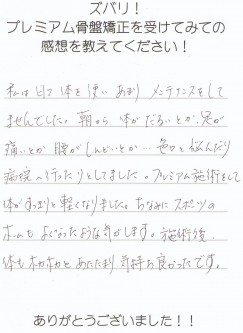 ズバリ！
プレミアム骨盤矯正を受けてみての
感想を教えてください！
私は日々体を使い あまり メンテナンスをして
ませんでした。朝から 体がだるいとか、足が
痛いとか 腰がしんどいとか… 色々と悩んだり
病院へ行ったりとしてました。プレミアム施術をして
体がすっきりと軽くなりました。ちなみに スポーツの
ホームも よくなったような気がします。施術後
体もポカポカと あたたまり 気持ち良かったです。
ありがとうございました！！